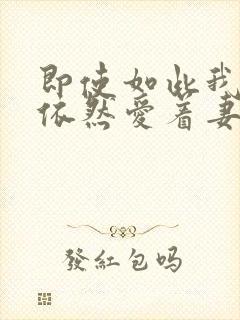 即使如此我
依然愛着妻
發紅包吗